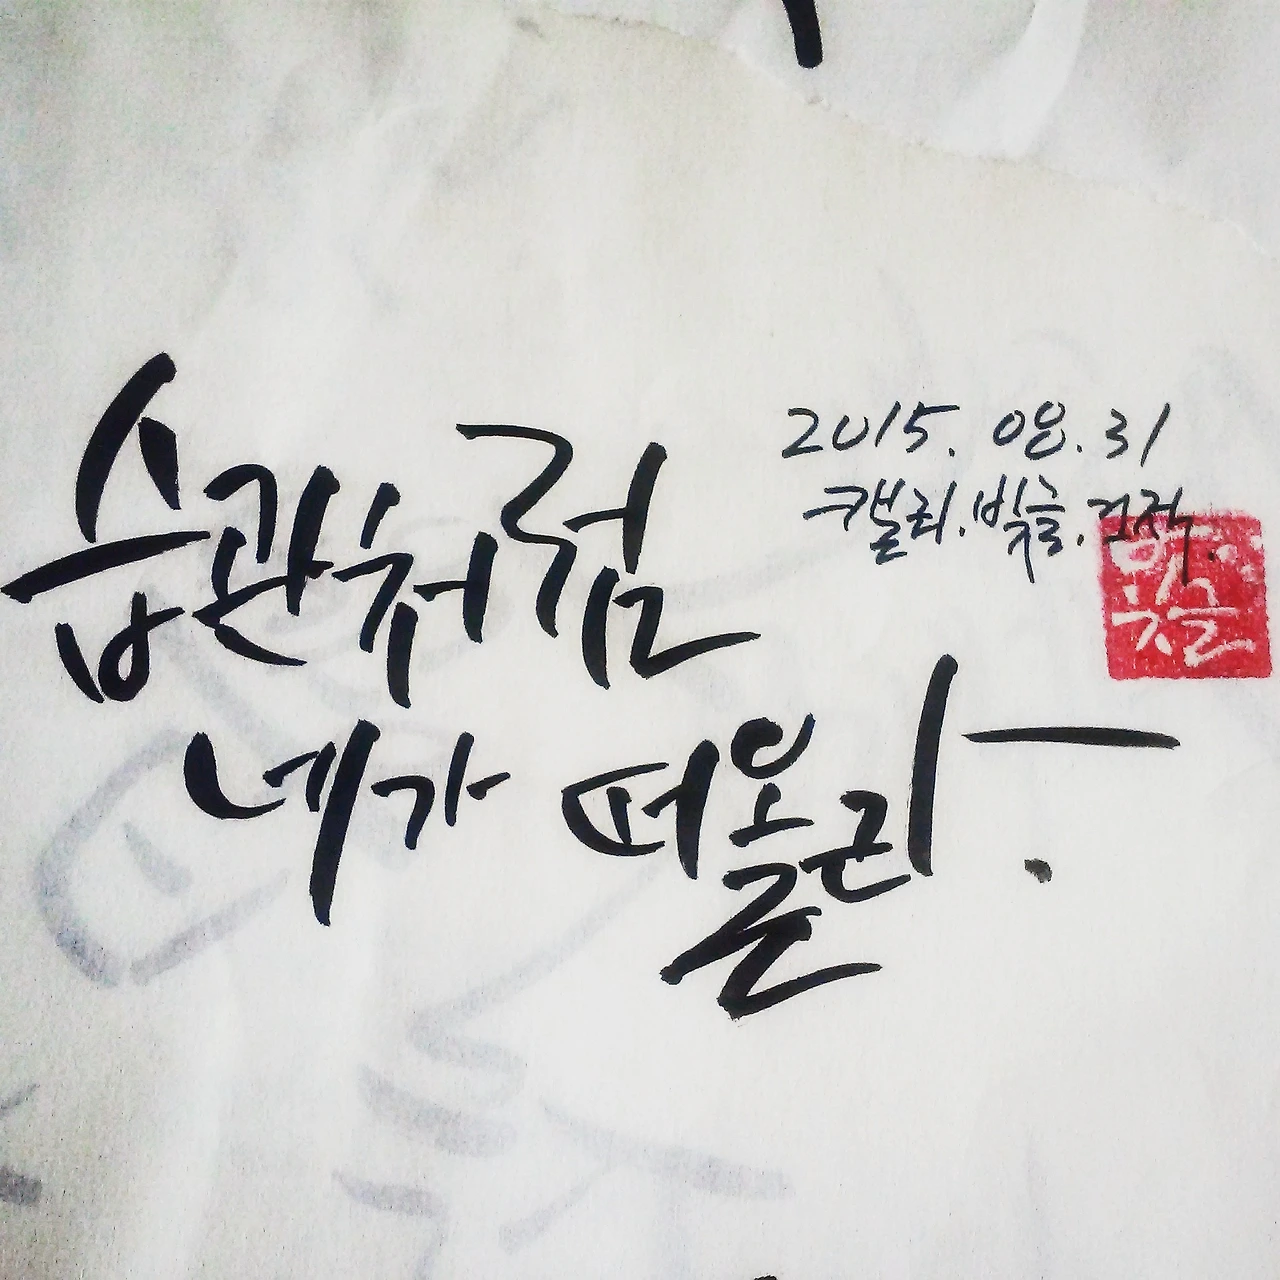 습관처럼
네가 떠올라.
2015. 08. 31
캘리.빛글.걷자.
빛글